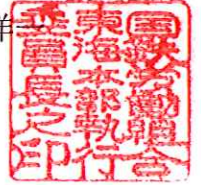 国鉄労働組合
東海本部執行
委員長之印